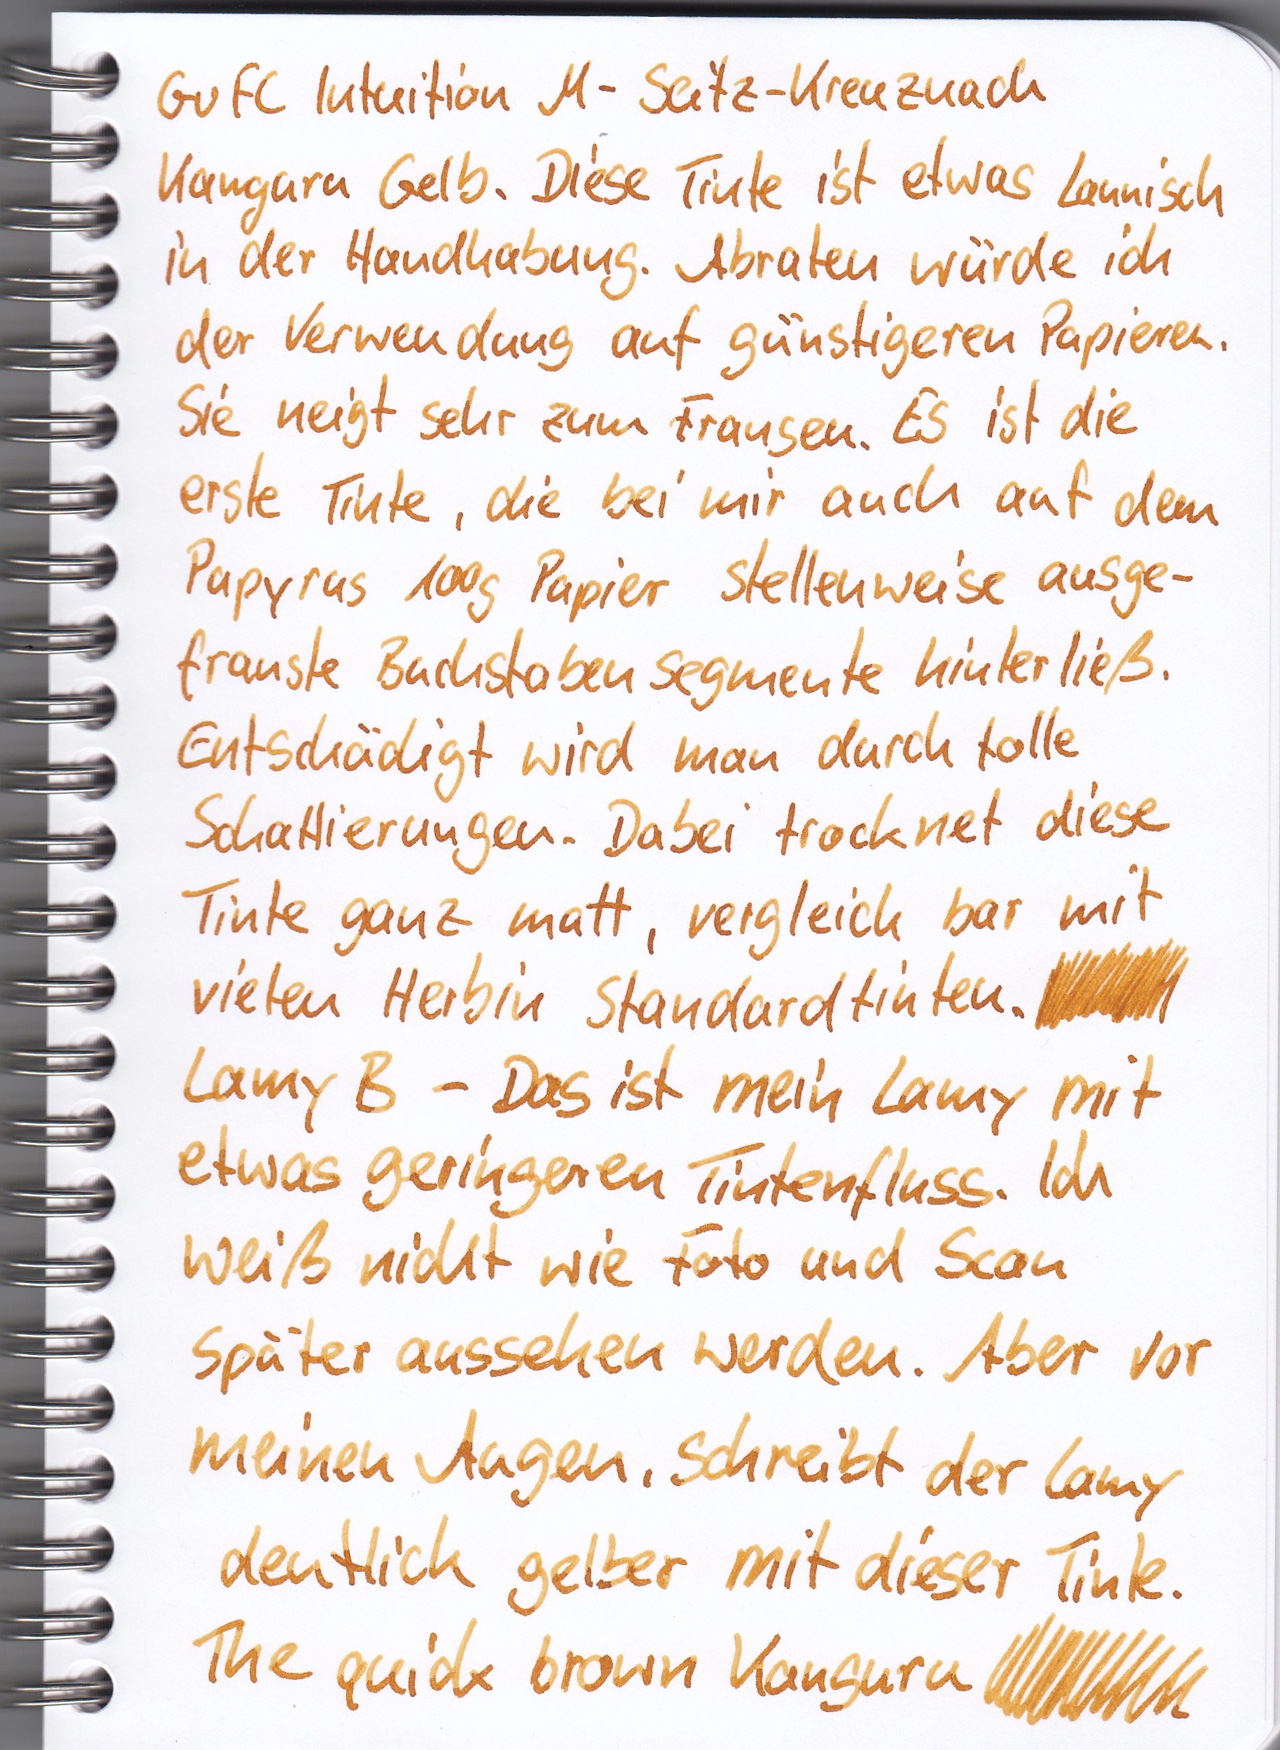 GvFC Intuition M - Seitz-Kreuznach
Kanguru Gelb. Diese Tinte ist etwas Launisch
in der Handhabung. Abraten würde ich
der Verwendung auf günstigeren Papieren.
Sie neigt sehr zum Fransen. Es ist die
erste Tinte, die bei mir auch auf dem
Papyrus 100g Papier stellenweise ausge-
franste Buchstabensegmente hinterließ.
Entschädigt wird man durch tolle
Schattierungen. Dabei trocknet diese
Tinte ganz matt, vergleichbar mit
vielen Herbin Standardtinten.
Lamy B - Das ist mein Lamy mit
etwas geringeren Tintenfluss. Ich
weiß nicht wie Foto und Scan
später aussehen werden. Aber vor
meinen Augen, schreibt der Lamy
deutlich gelber mit dieser Tinte.
The quick brown Kanguru